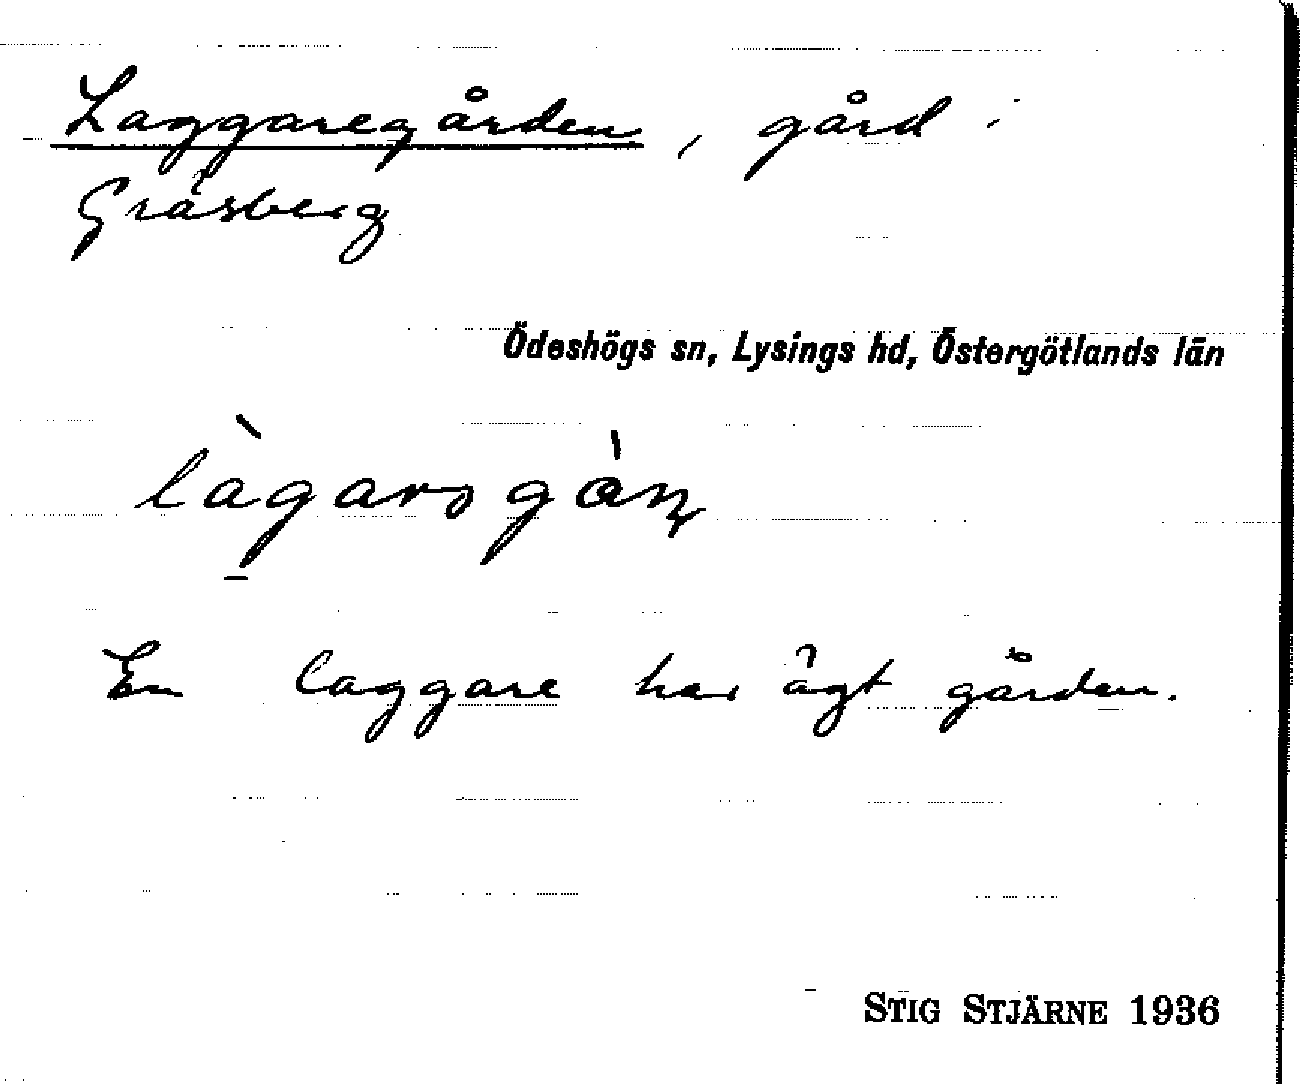 Laggaregården, gård i
Gräsberg
Ödeshögs sn, Lysings hd, Östergötlands län
En laggare har ägt gården.
STIG STJÄRNE 1936